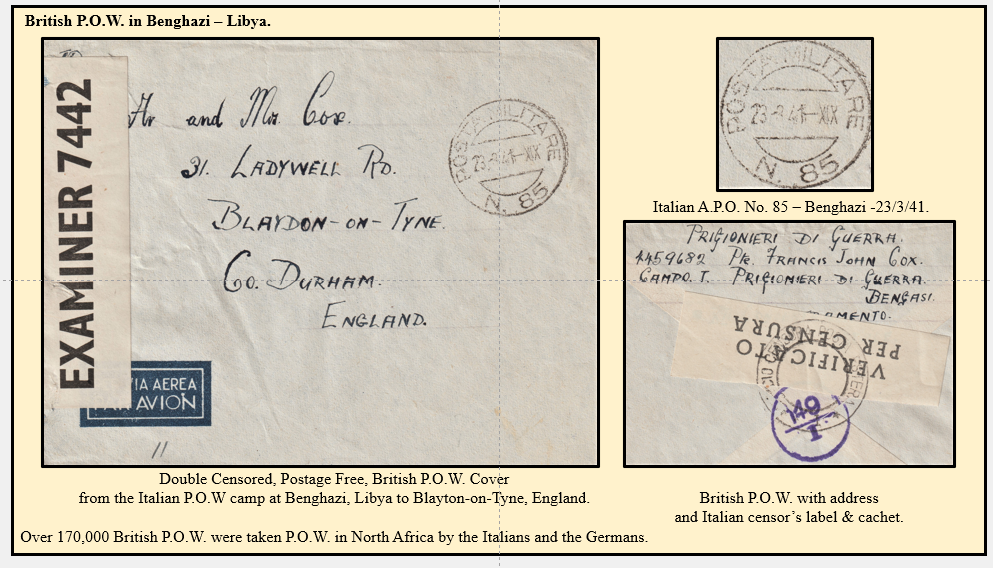 British P.O.W. in Benghazi – Libya.
EXAMINER 7442
Mr and Mrs. Cox.
31. LADYWELL RD.
BLAYDON-ON-TYNE.
Co. DURHAM.
ENGLAND.
POSTA MILITARE
23-3-41-XIX
N. 85
VIA AEREA
AVION
11
POSTA MILITARE
23-3-41-XIX
N. 85
Italian A.P.O. No. 85 – Benghazi -23/3/41.
PRIGIONIERI DI GUERRA.
4459682 Pte. FRANCIS JOHN COX.
CAMPO. T. PRIGIONIERI DI GUERRA.
BENGASI.
AMENTO.
VERIFICATO
PER CENSURA
149
I
Double Censored, Postage Free, British P.O.W. Cover
from the Italian P.O.W camp at Benghazi, Libya to Blayton-on-Tyne, England.
British P.O.W. with address
and Italian censor’s label & cachet.
Over 170,000 British P.O.W. were taken P.O.W. in North Africa by the Italians and the Germans.